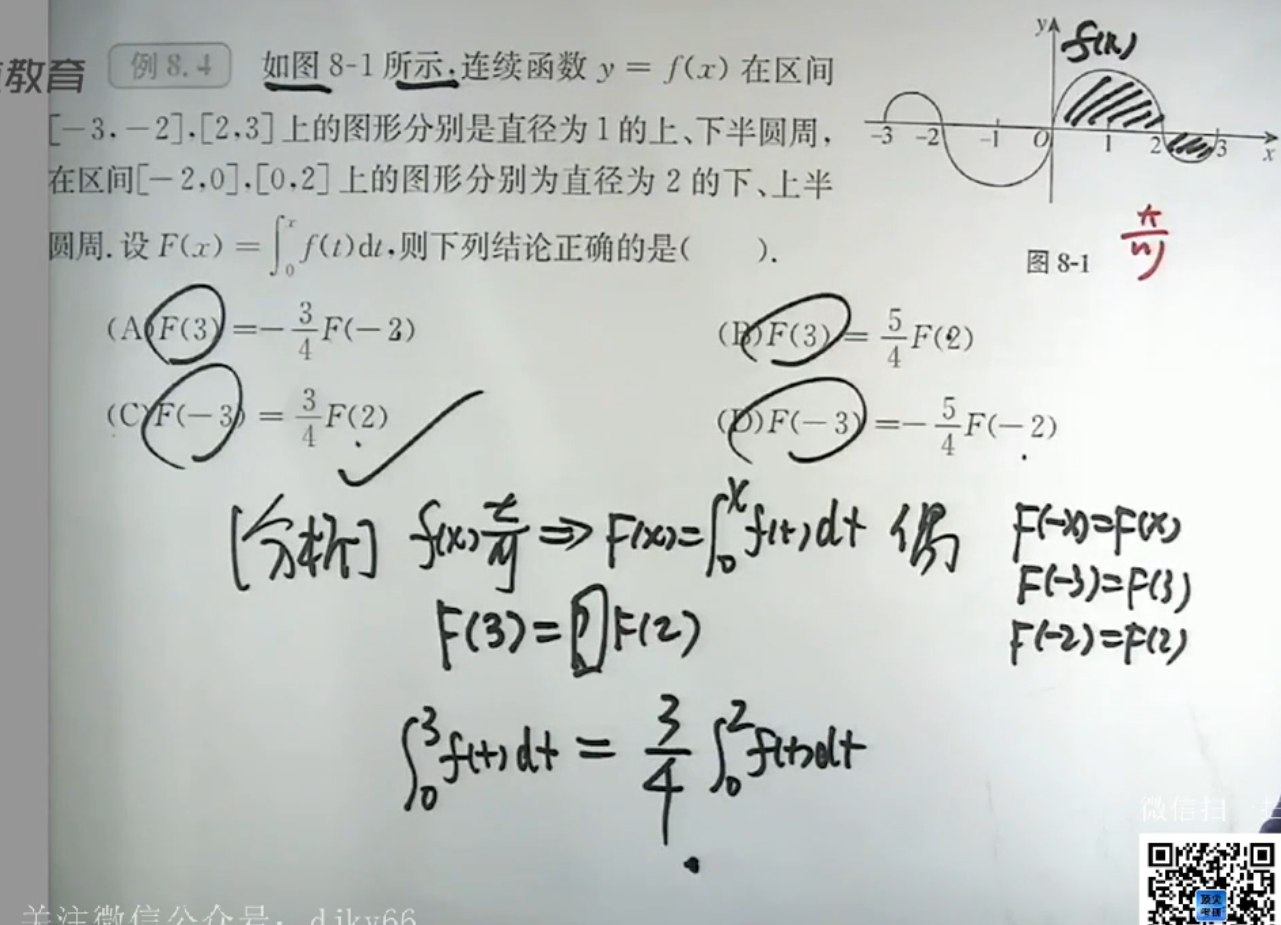 教育 例 8.4 如图 8-1 所示,连续函数 y = f(x) 在区间
[-3,-2],[2,3] 上的图形分别是直径为 1 的上、下半圆周,
在区间[-2,0],[0,2] 上的图形分别为直径为 2 的下、上半
圆周.设 F(x) = ∫₀ˣ f(t)dt,则下列结论正确的是( ).
y f(x)
-3 -2 -1 O 1 2 3 x
π/2
图 8-1
(A) F(3) = -3/4 F(-2) (B) F(3) = 5/4 F(2)
(C) F(-3) = 3/4 F(2) (D) F(-3) = -5/4 F(-2)
[分析] f(x) 奇 ⇒ F(x) = ∫₀ˣ f(t)dt 偶 F(-x)=F(x)
F(-3)=F(3)
F(3) = F(2) F(-2)=F(2)
∫₀³ f(t)dt = 3/4 ∫₀² f(t)dt
微信扫一扫
顶尖
考研
关注微信公众号: djky66